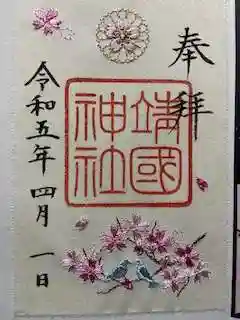 奉拝
靖國神社
令和五年四月一日